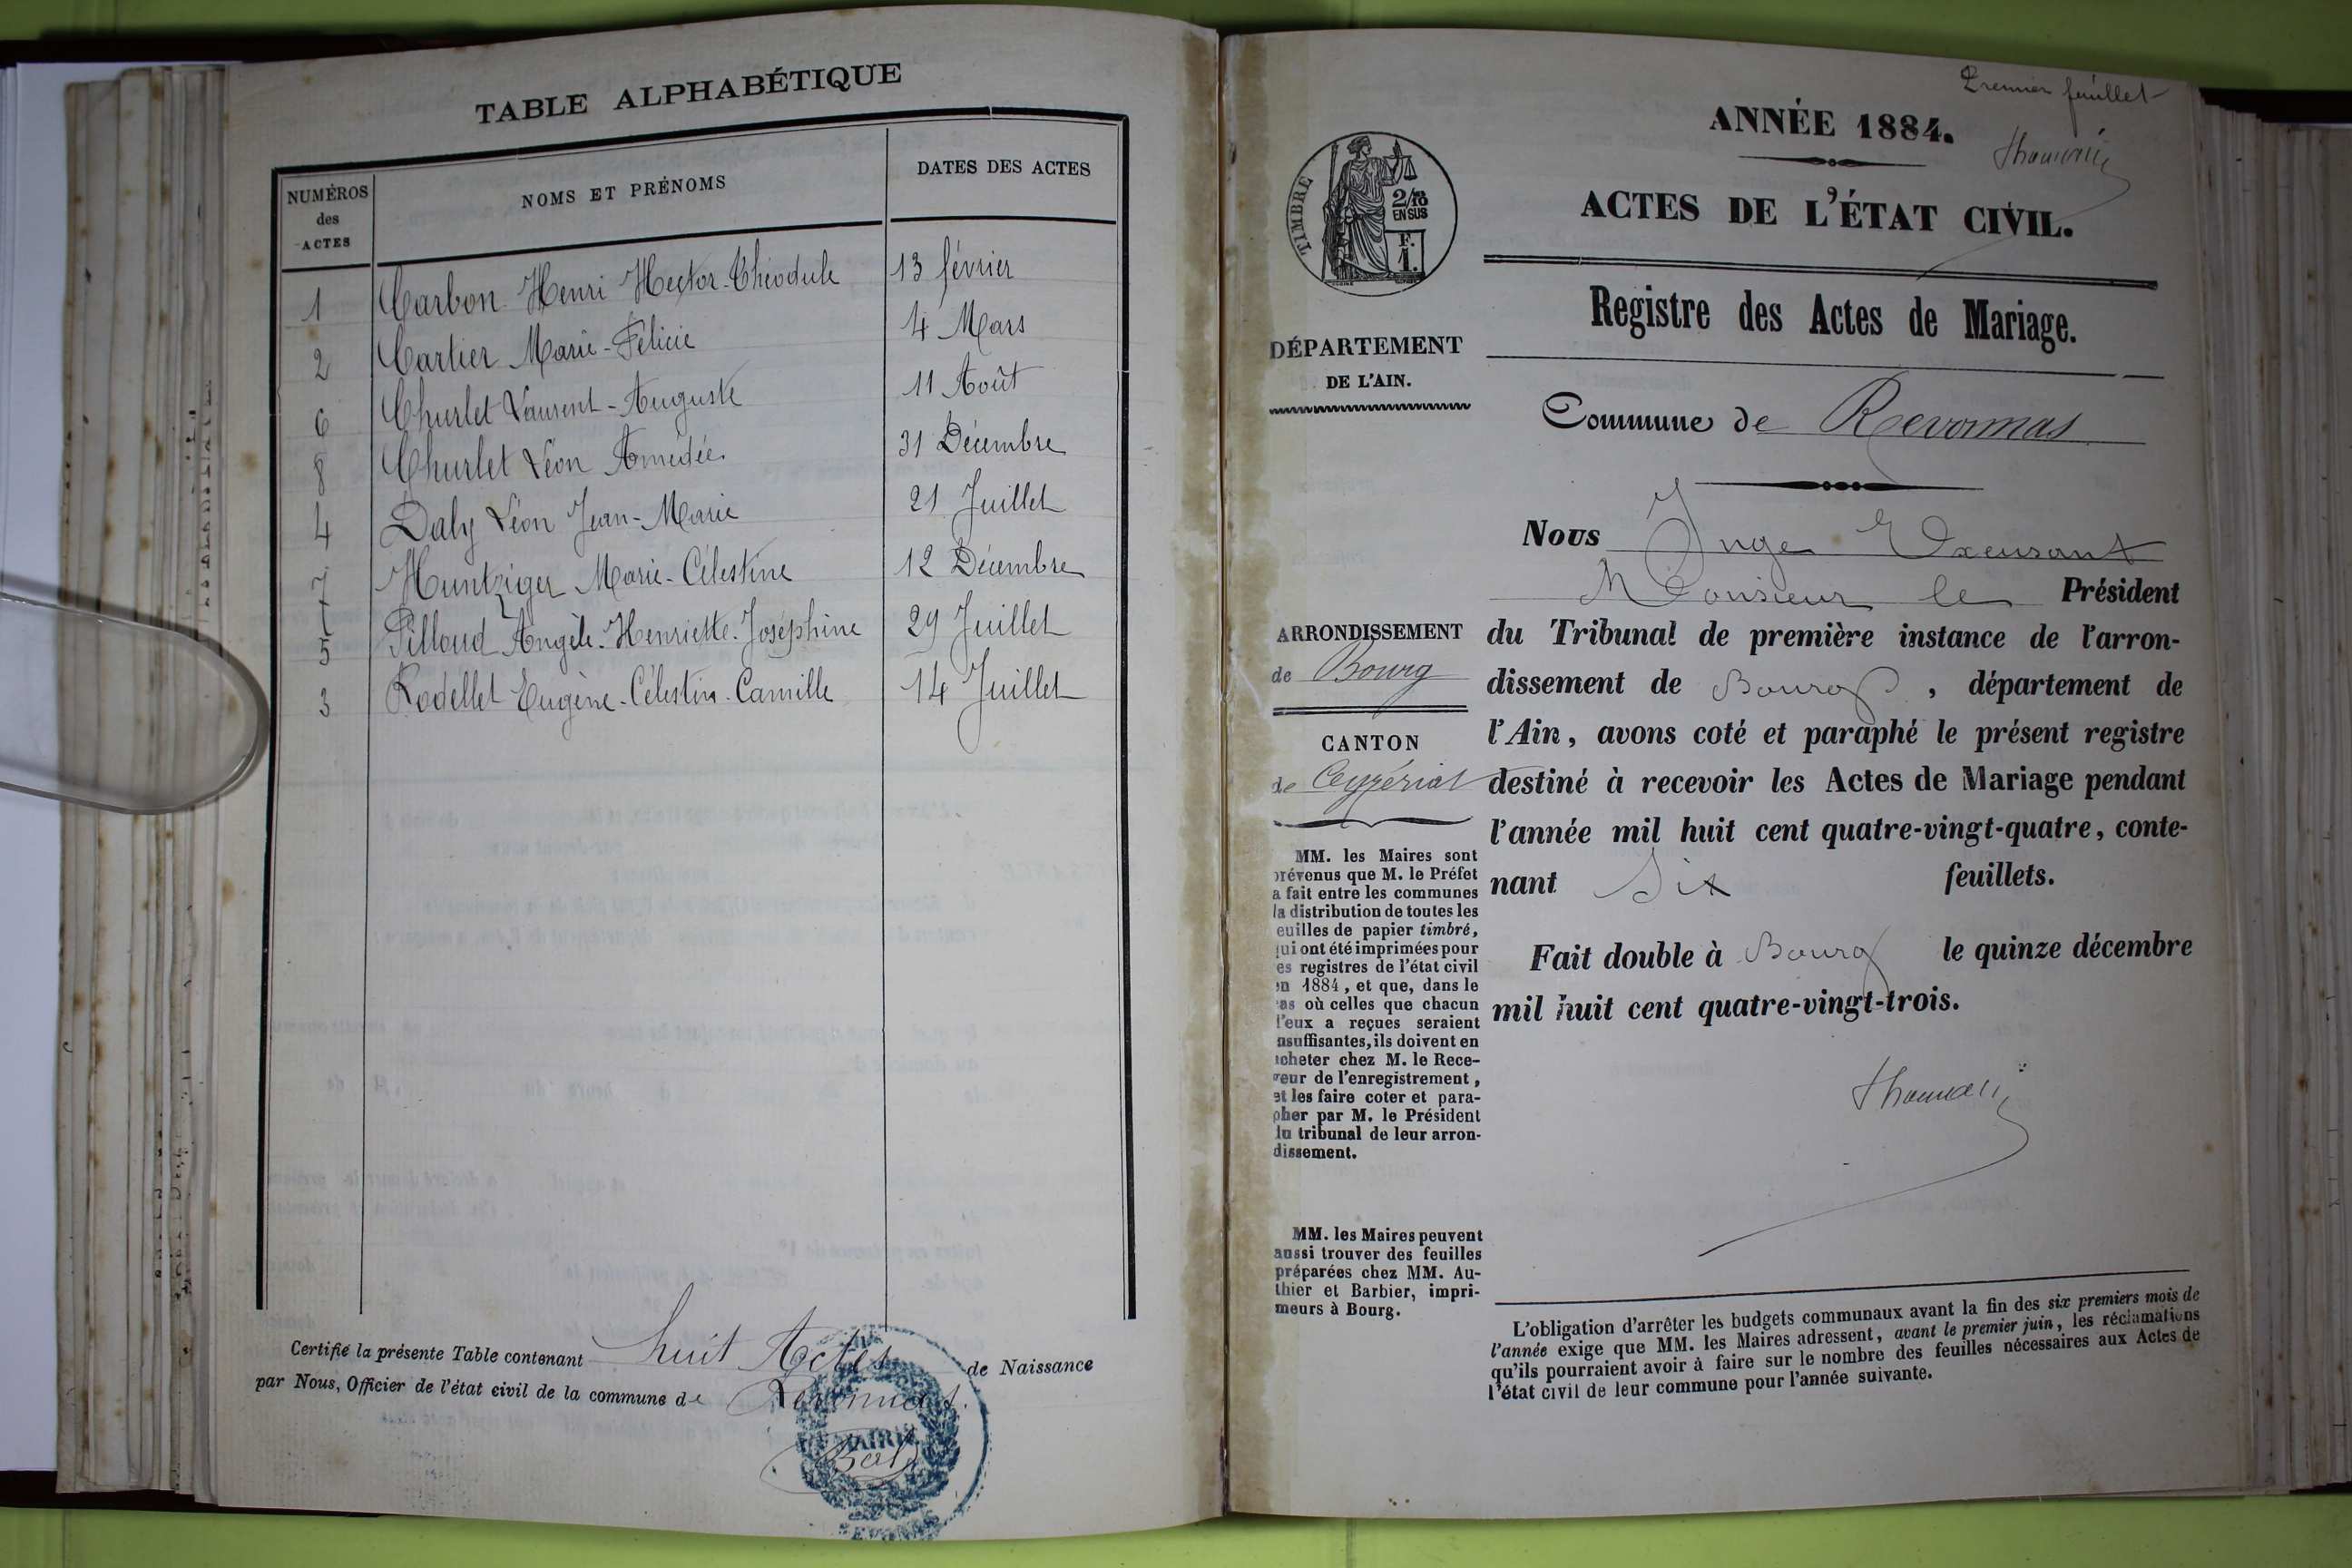 TABLE ALPHABÉTIQUE
NUMÉROS des ACTES
NOMS ET PRÉNOMS
DATES DES ACTES
1 Carbon Henri Hector-Théodule 13 février
2 Cartier Marie-Félicie 4 Mars
6 Churlet Laurent-Auguste 11 Août
8 Churlet Léon Amédée 31 Décembre
4 Daly Léon Jean-Marie 21 Juillet
7 Huntziger Marie-Célestine 12 Décembre
5 Pilloud Angèle-Henriette-Joséphine 29 Juillet
3 Rodellet Eugène-Célestin-Camille 14 Juillet
Certifié la présente Table contenant huit Actes de Naissance
par Nous, Officier de l'état civil de la commune de Revonnas.
MAIRIE
Premier feuillet
ANNÉE 1884.
ACTES DE L'ÉTAT CIVIL.
Registre des Actes de Mariage.
Commune de Revonnas
TIMBRE
2/10
EN SUS
F.
1.
DÉPARTEMENT
DE L'AIN.
ARRONDISSEMENT
de Bourg
CANTON
de Ceyzériat
MM. les Maires sont
prévenus que M. le Préfet
a fait entre les communes
la distribution de toutes les
feuilles de papier timbré,
qui ont été imprimées pour
les registres de l'état civil
en 1884, et que, dans le
cas où celles que chacun
d'eux a reçues seraient
insuffisantes, ils doivent en
acheter chez M. le Rece-
veur de l'enregistrement,
et les faire coter et para-
pher par M. le Président
du tribunal de leur arron-
dissement.
MM. les Maires peuvent
aussi trouver des feuilles
préparées chez MM. Au-
thier et Barbier, impri-
meurs à Bourg.
Nous Juge Excusant
Monsieur le Président
du Tribunal de première instance de l'arron-
dissement de Bourg, département de
l'Ain, avons coté et paraphé le présent registre
destiné à recevoir les Actes de Mariage pendant
l'année mil huit cent quatre-vingt-quatre, conte-
nant Six feuillets.
Fait double à Bourg le quinze décembre
mil huit cent quatre-vingt-trois.
L'obligation d'arrêter les budgets communaux avant la fin des six premiers mois de
l'année exige que MM. les Maires adressent, avant le premier juin, les réclamations
qu'ils pourraient avoir à faire sur le nombre des feuilles nécessaires aux Actes de
l'état civil de leur commune pour l'année suivante.